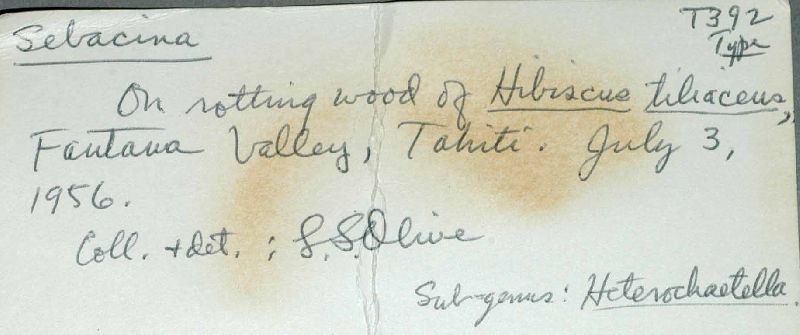 Sebacina
T392
Type
On rotting wood of Hibiscus tiliaceus,
Fautaua Valley, Tahiti. July 3,
1956.
Coll. + det. : L.S. Olive
Sub-genus: Heterochaetella.